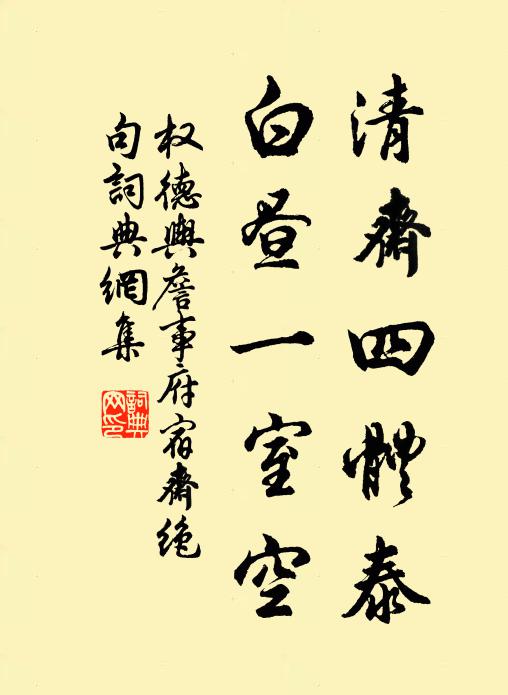 清齋四體泰
白昼一室空
权德輿詹事府宿齋绝
句詞典網集
詞典
网印